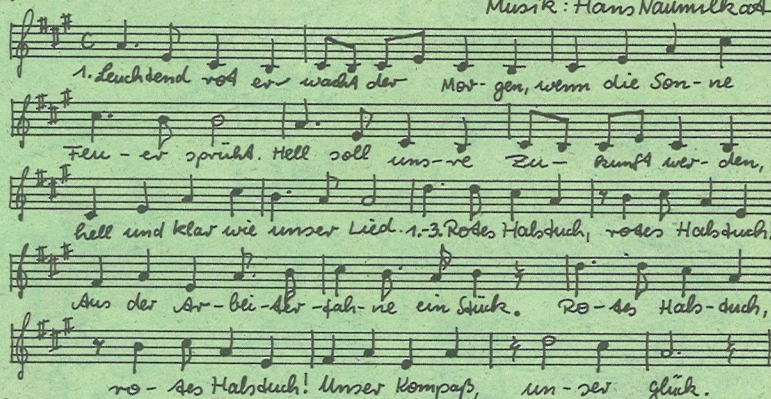 Musik: Hans Naumilkat
1. Leuchtend rot er- wacht der Mor- gen, wenn die Son- ne
Feu - er sprüht. Hell soll uns- re Zu- kunft wer- den,
hell und klar wie unser Lied. 1.-3. Rotes Halstuch, rotes Halstuch.
Aus der Ar- bei- ter- fah- ne ein Stück. Ro- tes Hals- tuch,
ro- tes Halstuch! Unser Kompaß, un- ser Glück.